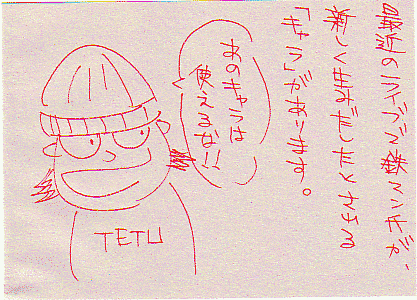 最近のライブで鉄マンキが、
新しく生みだしたくさ出る
「キャラ」があります。
あのキャラは
使えるな!!
TETU